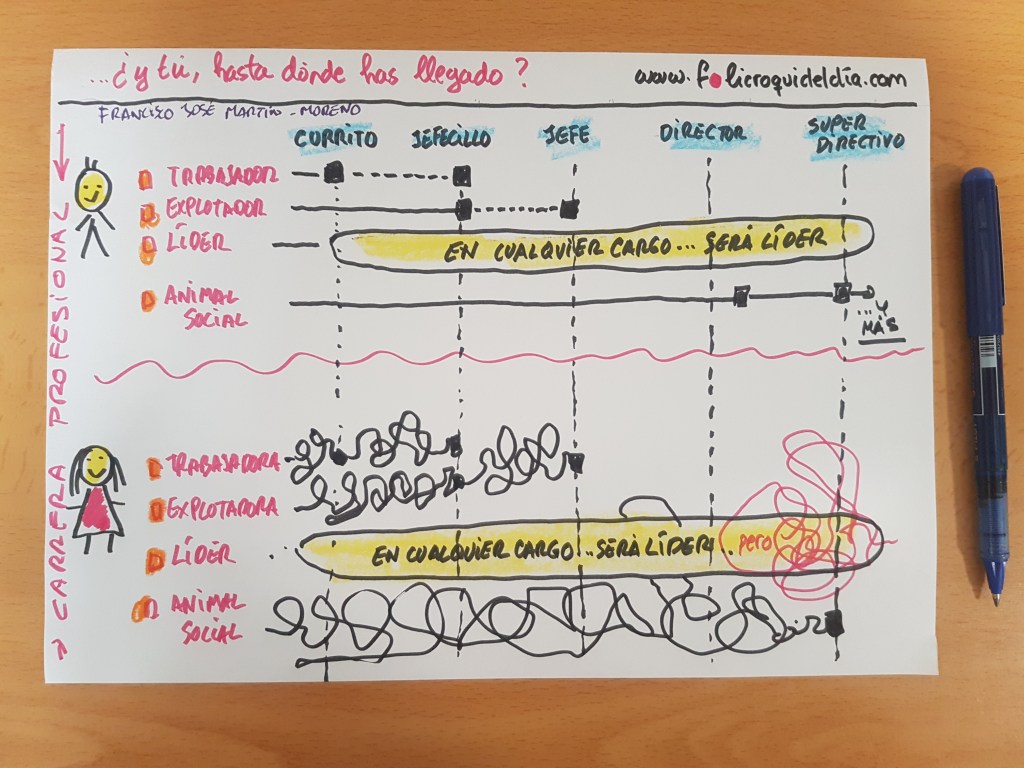 ...¿y tú, hasta dónde has llegado?
www.folicroquideldía.com
FRANCISCO JOSÉ MARTÍN-MORENO
CURRITO JEFECILLO JEFE DIRECTOR SUPER DIRECTIVO
→ CARRERA PROFESIONAL
TRABAJADOR
EXPLOTADOR
LÍDER EN CUALQUIER CARGO... SERÁ LÍDER
ANIMAL
SOCIAL
...Y
MÁS
TRABAJADORA
EXPLOTADORA
LÍDER EN CUALQUIER CARGO...SERÁ LÍDER... pero
ANIMAL
SOCIAL